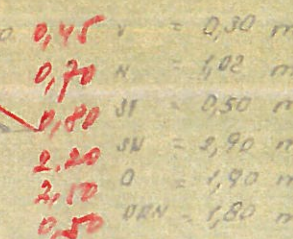 0,45 V = 0,30 m
0,70 N = 1,02 m
0,80 ST = 0,50 m
2,20 SN = 2,90 m
2,50 O = 1,90 m
0,50 = 1,80 m